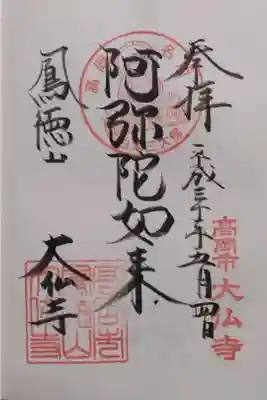 奉拝
平成三十年五月四日
高岡市大仏寺
阿弥陀如来
鳳徳山
大仏寺